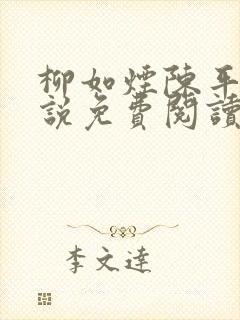 柳如煙陳平
說免費閱讀
李文達